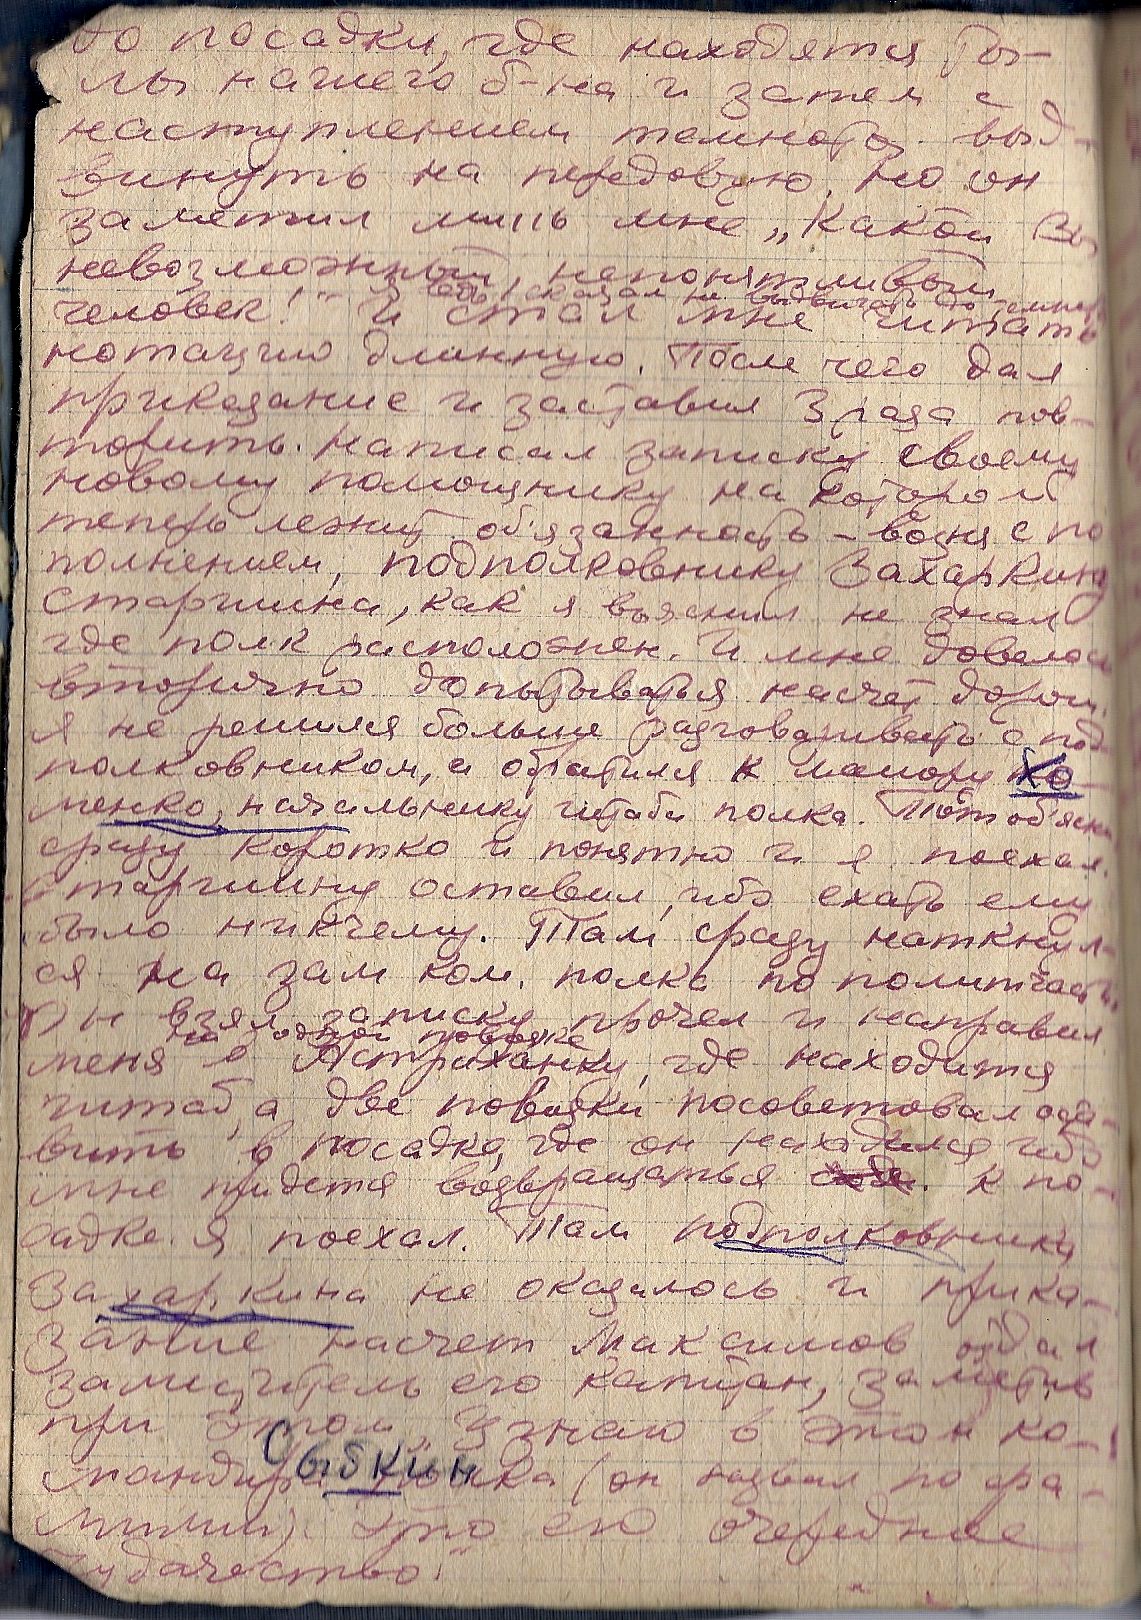 до посадки, где находятся Ты-
лы нашего б-на и затем с
наступлением темноты выд-
винуть на передовую. Но он
заметил лишь мне „Какой Вы
невозможный, непонятливый
сказал не выдвигать до
человек!" И стал мне читать
нотацию длинную. После чего дал
приказание и заставил 3 раза пов-
торить. Написал записку своему
новому помощнику на котором
теперь лежит об'язанность – возня с по
полнением, подполковнику Захаркину
Старшина, как я выяснил не знал
где полк расположен. И мне довелось
вторично допытываться насчет дороги.
Я не решился больше разговаривать с под-
полковником, и обратился к майору Хо
менко, начальнику штаба полка. Тот об'яснил
сразу коротко и понятно и я поехал.
Старшину оставил, ибо ехать ему
было ни к чему. Там сразу наткнул-
ся на зам ком. полка по политчасти.
Он взял записку прочел и направил
на одной повозке
меня в Астраханку, где находится
штаб, а две повозки посоветовал оста-
вить в посадке, где он находился ибо
мне придется возвращаться сюда. К по-
садке я поехал. Там подполковника
Захаркина не оказалось и прика-
зание насчет Максимов отдал
заместитель его капитан, заметив
при этом „Узнаю в этом ко-
Сыбкин
мандира полка (он назвал по фа-
милии). Это его очередное
чудачество!"